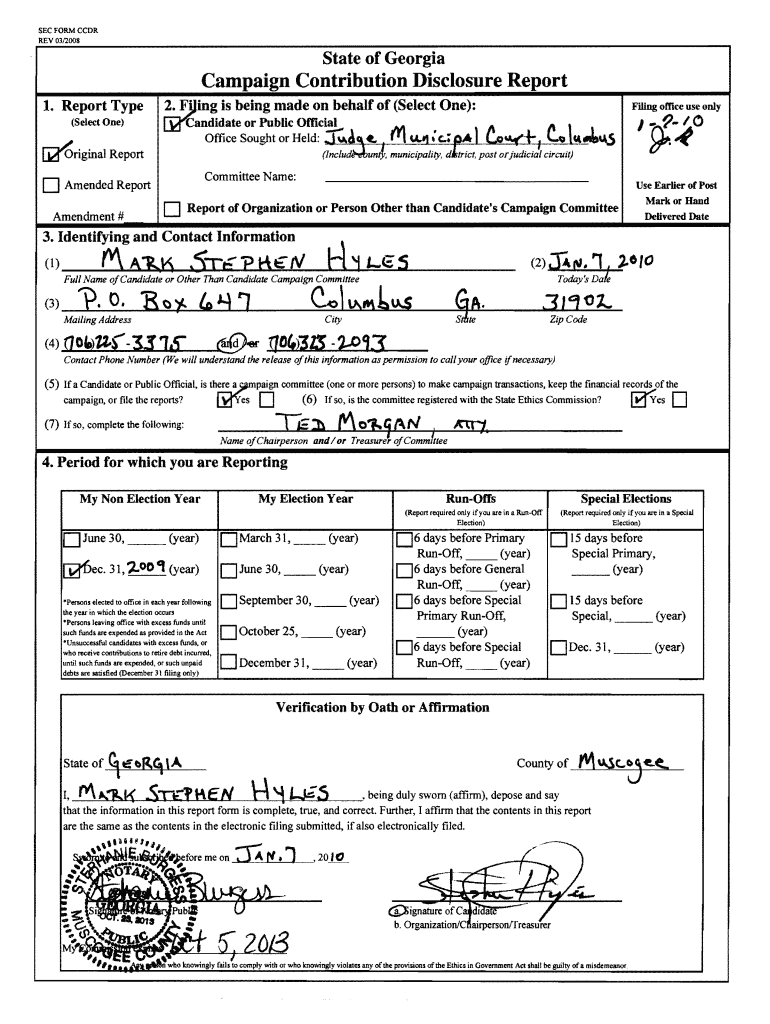 SEC FORM CCDR
REV 03/2008
State of Georgia
Campaign Contribution Disclosure Report
1. Report Type
(Select One)
Original Report
Amended Report
Amendment #
2. Filing is being made on behalf of (Select One):
Candidate or Public Official
Office Sought or Held: Judge, Municipal Court, Columbus
(Include county, municipality, district, post or judicial circuit)
Committee Name:
Report of Organization or Person Other than Candidate's Campaign Committee
Filing office use only
Use Earlier of Post
Mark or Hand
Delivered Date
3. Identifying and Contact Information
(1) MARK STEPHEN HYLES (2) JAN. 7, 2010
Full Name of Candidate or Other Than Candidate Campaign Committee Today's Date
(3) P.O. Box 647 Columbus GA. 31902
Mailing Address City State Zip Code
(4) (706)225-3375 and or (706)323-2093
Contact Phone Number (We will understand the release of this information as permission to call your office if necessary)
(5) If a Candidate or Public Official, is there a campaign committee (one or more persons) to make campaign transactions, keep the financial records of the
campaign, or file the reports? Yes (6) If so, is the committee registered with the State Ethics Commission? Yes
(7) If so, complete the following: TED MORGAN, ATTY.
Name of Chairperson and/or Treasurer of Committee
4. Period for which you are Reporting
My Non Election Year
June 30, (year)
Dec. 31, 2009 (year)
*Persons elected to office in each year following
the year in which the election occurs
*Persons leaving office with excess funds until
such funds are expended as provided in the Act
*Unsuccessful candidates with excess funds, or
who receive contributions to retire debt incurred,
until such funds are expended, or such unpaid
debts are satisfied (December 31 filing only)
My Election Year
March 31, (year)
June 30, (year)
September 30, (year)
October 25, (year)
December 31, (year)
Run-Offs
(Report required only if you are in a Run-Off
Election)
6 days before Primary
Run-Off, (year)
6 days before General
Run-Off, (year)
6 days before Special
Primary Run-Off,
(year)
6 days before Special
Run-Off, (year)
Special Elections
(Report required only if you are in a Special
Election)
15 days before
Special Primary,
(year)
15 days before
Special, (year)
Dec. 31, (year)
Verification by Oath or Affirmation
State of GEORGIA County of Muscogee
I, MARK STEPHEN HYLES, being duly sworn (affirm), depose and say
that the information in this report form is complete, true, and correct. Further, I affirm that the contents in this report
are the same as the contents in the electronic filing submitted, if also electronically filed.
before me on JAN. 7, 2010
STEPHANIE BURGESS
NOTARY
GEORGIA
OCT. 23, 2013
PUBLIC
MUSCOGEE COUNTY
Signature of Notary Public
a. Signature of Candidate
b. Organization/Chairperson/Treasurer
5, 2013
who knowingly fails to comply with or who knowingly violates any of the provisions of the Ethics in Government Act shall be guilty of a misdemeanor